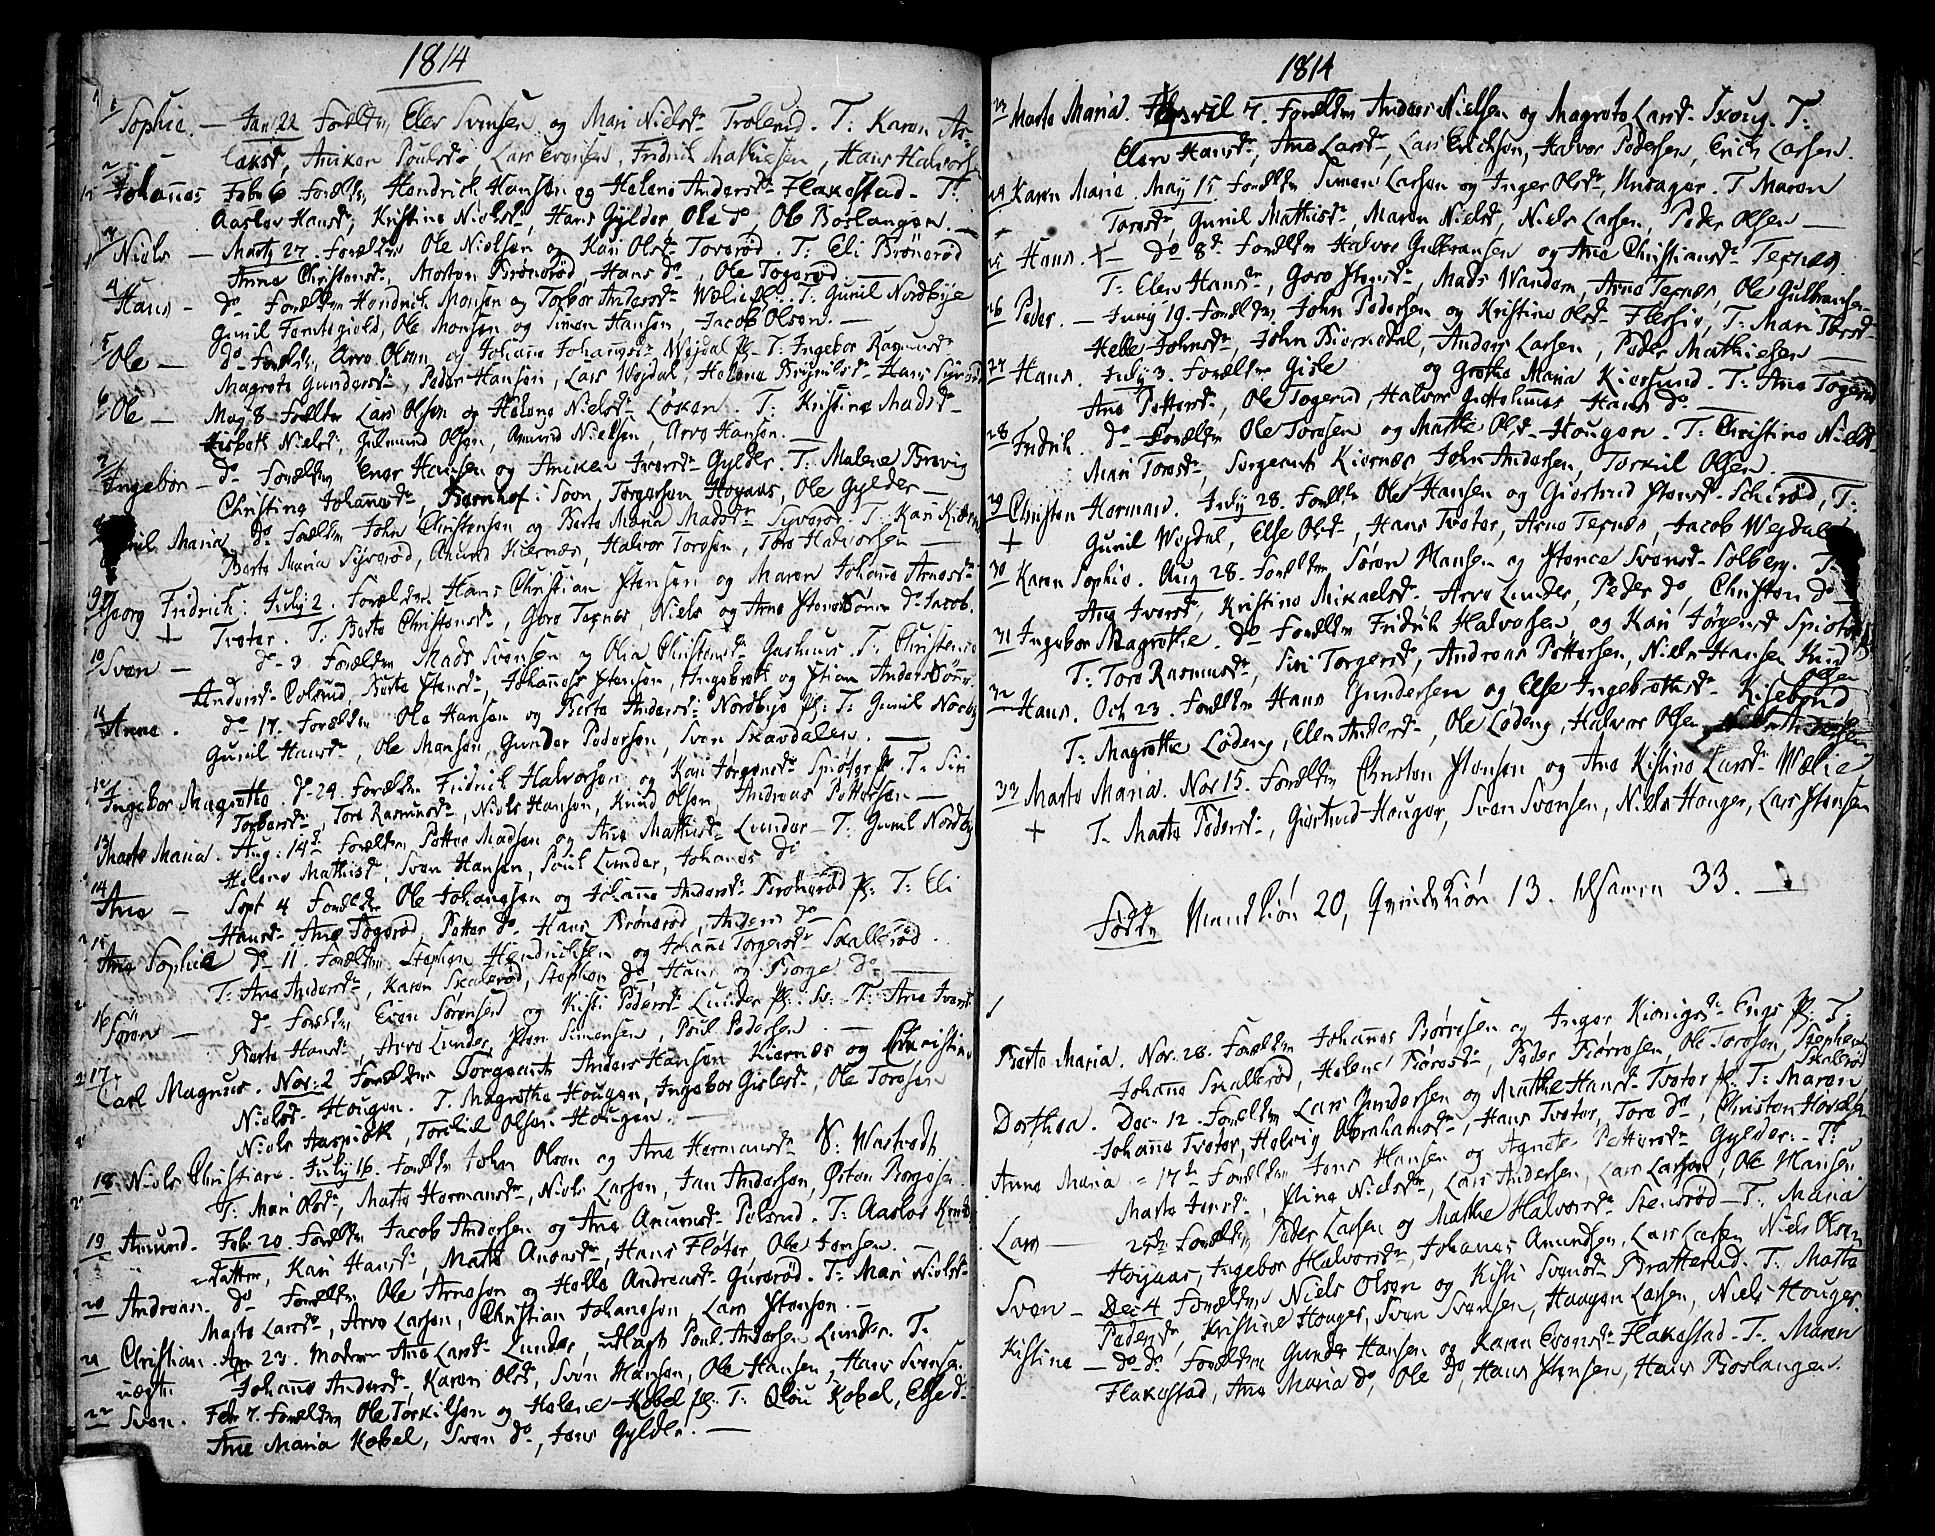 1814
1 Sophie. — Jan 22 Forældn, Elev Svensen og Mari Nielsdr Trolerud. T: Karen As-
laksdr, Aniken Poulsdr, Lars Evensen, Fridrik Mathiesen, Hans Halvors:
2 Johanes Febr 6 Forældn, Hendrich Hansen og Helene Andersdr Flakestad. T:
Aaslov Hansdr, Kristine Nielsdr, Hans Gylder, Ole do, Ole Boslangen. —
3 Niels — Marty 27. Forældn Ole Nielsen og Kari Olsdr Toverød. T: Eli Brönerød
Anne Christensdr, Morten Brönerød, Hans do, Ole Togerød. —
4 Hans — do Forældrn Hendrich Monsen og Torbor Andersdr Wælie pl: T: Gunil Nordbye
Gunil Ole Monsen og Simon Hansen, Jacob Olsen. —
5 Ole — do Forældn, Arve Olsen og Johanne Johannesdr Wejdal pl. T: Ingebor Rasmusdr
Magrete Gundersdr, Peder Hansen, Lars Wejdal, Helene Hans
6 Ole — May 8 Forældrn Lars Olsen og Helene Nielsdr Løken. T: Kristine Madsdr
Lisbeth Nielsdr, Gulmund Olsen, Amund Nielsen Arve Hansen. —
7 Ingebor — do Forældrn Enor Hansen og Aniken Iversdr Gylder. T: Malene Brevig
Christine Johannesdr, Barnhof i Soon, Torgersen Hoyaas, Ole Gylder —
Maria do Forældrn John Christensen og Berte Maria Madsdr Syverød. T: Kari
Berte Maria Syverød, Amund Kiernæs, Halvor Toresen, Tore Halvorsen —
9 Georg Fridrich: July 2. Forældrn Hans Christian Stensen og Maren Johanne Arnesdr
+ Tveter. T: Berte Christensdr, Gore Texnæs, Niels og Arne do Jacob.
10 Sven — do 3 Forældrn Mads Svensen og Olia Christensdr Gashuus. T: Christence
Andersdr Berte Stensdr, Johannes Stensen, Ingebreth og Stian Anders
11 Anne. do 17. Forældrn Ole Hansen og Berte Andersdr Nordbye pl: T: Gunil Norby
Gunil Hansdr, Ole Mansen, Gunder Pedersen, Sven Skavdalen. —
12 Ingebor Magrette. do 24. Forældrn Fridrich Halvorsen og Kari Jørgensdr Spiøter pl. T: Siri
Torbersdr, Tore Rasmusdr, Niels Hansen, Knud Olsen, Andreas Pettersen —
13 Marte Maria. Aug: 14d Forældrn Petter Madsen og Ane Mathisdr Lunder — T: Gunil Nordby
Helene Mathisdr, Sven Hansen, Poul Lunder, Johanes do
14 Ane — Sept 4 Forældrn Ole Johansen og Johanne Andersdr Brönerød pl: T: Eli
Hansdr Ane Togerød, Petter do, Hans Brönerød, Anders do —
15 Ane Sophie do 11. Forældrn Stephen Hendrichsen og Johanne Torgersdr Skallerød.
T: Ane Andersdr, Karen Skalerød, Stephen do, Hans og Borge do —
16 Søren — do Forældrn Even Sørensen og Kisti Pedersdr Lunder pl: T: Ane Iversdr
Berte Hansdr, Arve Lunder, Sten Simensen, Poul Pedersen — Christine
17 Carl Magnus. Nov: 2 Forældrn Sergeant Anders Hansen Kiernæs og
Nielsdr Hougen. T. Magrethe Hougen, Ingebor Gislesdr, Ole Toresen
Niels Torchil Olsen Hougen. —
18 Niels Christian. July 16. Forældrn John Olsen og Ane Hermansdr N: Wastvedt
T: Mari Olsdr, Marte Hermansdr, Niels Larsen, Jan Andersen, Østen Borgesen.
19 Amund. Febr 20. Forældrn Jacob Andersen og Ane Amunsdr Polsrud. T: Aaslov
Kari Hansdr, Marte Hans Fløter, Ole Jonsen. —
20 Andreas. do Forældrn Ole Arnesen og Helle Andreasdr Guserød. T: Mari Nielsdr
Marte Larsdr, Arve Larsen, Christian Johansen Lars Stensen. —
21 Christian. Apr 23. Modern Ane Larsdr Lunder, udlagt Poul Andersen Lunder. T:
uægte Johanne Andersdr, Karen Olsdr, Sven Hansen, Ole Hansen, Hans Svensen.
22 Sven. Febr 7. Forældrn Ole Torkilsen og Helene Kobel pl: T: Olou Kobel, Else do
Ane Maria Kobel, Sven do, Jens Gylder. —
1814
23 Marte Maria. April 7. Forældrn Anders Nielsen og Magrete Larsdr Skoug. T:
Elen Hansdr, Ane Larsdr, Lars Erichsen, Halvor Pedersen, Erich Larsen.
24 Karen Marie. May 15. Forældrn Simen Larsen og Inger Olsdr, Unsager. T Maren
Toresdr, Gunil Mathisdr, Maren Nielsdr, Niels Larsen, Peder Olsen —
25 Hans. + — do 8d Forældrn Halvor Gulbransen og Ane Christiansdr Texnes.
T: Elen Hansdr, Gore Stensdr, Mads Wandem, Arne Texnes, Ole Gulbransen —
26 Peder. — Juny 19. Forældrn John Pedersen og Kristine Olsdr Flessiø, T: Mari Toresdr
Helle Johnsdr, John Biørnedal, Anders Larsen, Peder Mathiesen —
27 Hans. July 3. Forældrn Gisle og Grethe Maria Kiøssund. T: Ane Togerud
Ane Pettersdr, Ole Togerud, Halvor Hans do —
28 Fridrik. do Forældrn Ole Toresen og Marthe Olsdr Hougen. T: Christine Nielsdr
Mari Toresdr, Sergeant Kiernæs, John Andersen, Torkil Olsen. —
29 Christen Herman. July 28. Forældrn Ole Hansen og Giertrud Stensdr Schirød, T:
+ Gunil Wejdal, Else Olsdr, Hans Tveter, Arne Texnæs, Jacob Wejdal
30 Karen Sophie. Aug 28. Forældrn Søren Hansen og Stence Svensdr Solberg. T:
Ane Iversdr, Kristine Mikaelsdr, Arve Lunder, Peder do, Christen do
31 Ingebor Magrethe. do Forældrn Fridrik Halvorsen og Kari Jörgensdr Spiøter
T: Tore Rasmusdr, Siri Torgersdr, Andreas Pettersen, Niels Hansen Knud
Olsen
32 Hans. Oct 23. Forældrn Hans Gundersen og Else Ingebrethsdr Kisebrud
T: Magrethe Lødeng, Elen Andersdr, Ole Lødeng, Halvor Olsen
33 Marte Maria. Nov 15. Forældrn Christen Stensen og Ane Kistine Larsdr Wælie
+ T. Marte Pedersdr, Giertrud Houger, Sven Svensen, Niels Houger, Lars Stensen
Fødde Mandkiön 20, Qvindekiön 13. Tilsamen 33. —
1
Berte Maria. Nov. 28. Forældrn Johannes Börresen og Inger Kionigsdr Enge pl: T:
Johanne Skallerød, Helene Peder Börresen, Ole Toresen, Stephen
Skalerød
Dorthea. Dec. 12. Forældrn Lars Gundersen og Mathe Hansdr Tveter pl. T: Maren,
Johanne Tveter, Helvig Abrahamsdr, Hans Tveter, Tore do, Christen
Anne Maria — 17d Forældrn Jens Hansen og Agnete Pettersdr Gylder. — T:
Marte Jensdr, Stine Nielsdr, Lars Andersen, Lars Larsen, Ole Hansen
Lars — 25de Forældrn Peder Larsen og Mathe Halvorsdr Stensrød — T: Maria
Hoyaas, Ingebor Halvorsdr, Johanes Amundsen, Lars Larsen Niels Olsen
Sven — Dec 4 Forældrn Niels Olsen og Kisti Svensdr Bratterud. T. Marte
Pedersdr, Kristine Houger, Sven Svensen, Haagen Larsen, Niels Houger.
Kistine — do do Forældrn Gunder Hansen og Karen Evensdr Flakestad. T. Maren
Flakestad, Ane Maria do, Ole do, Hans Stensen, Hans Boslangen.